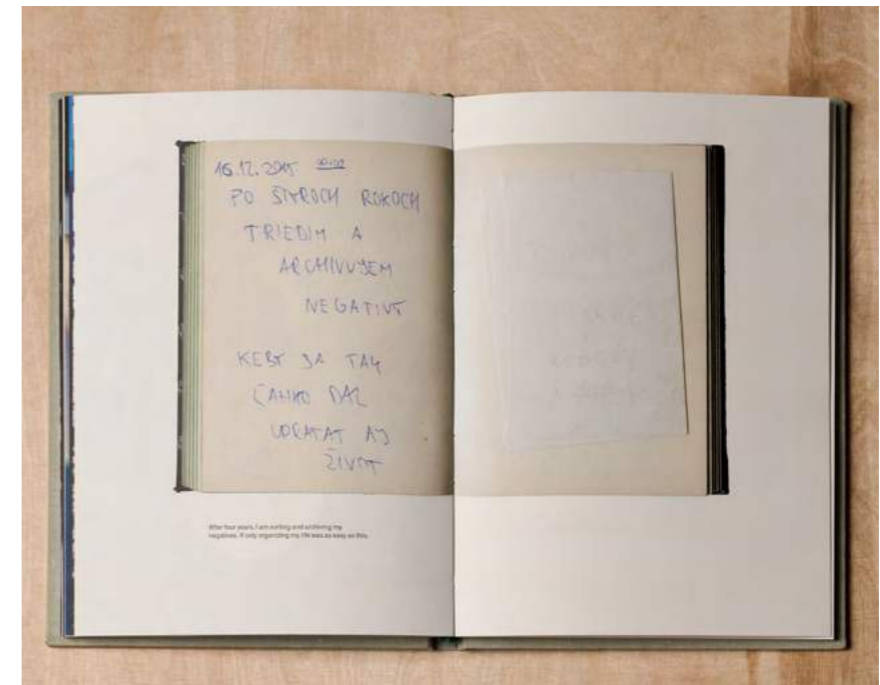 16.12.2015 20:02
PO ŠTYROCH ROKOCH
TRIEDIM A
ARCHIVUJEM
NEGATIVY
KEBY SA TAK
ĽAHKO DAL
UPRATAT AJ
ŽIVOT
After four years, I am sorting and archiving my
negatives. If only organizing my life was as easy as this.